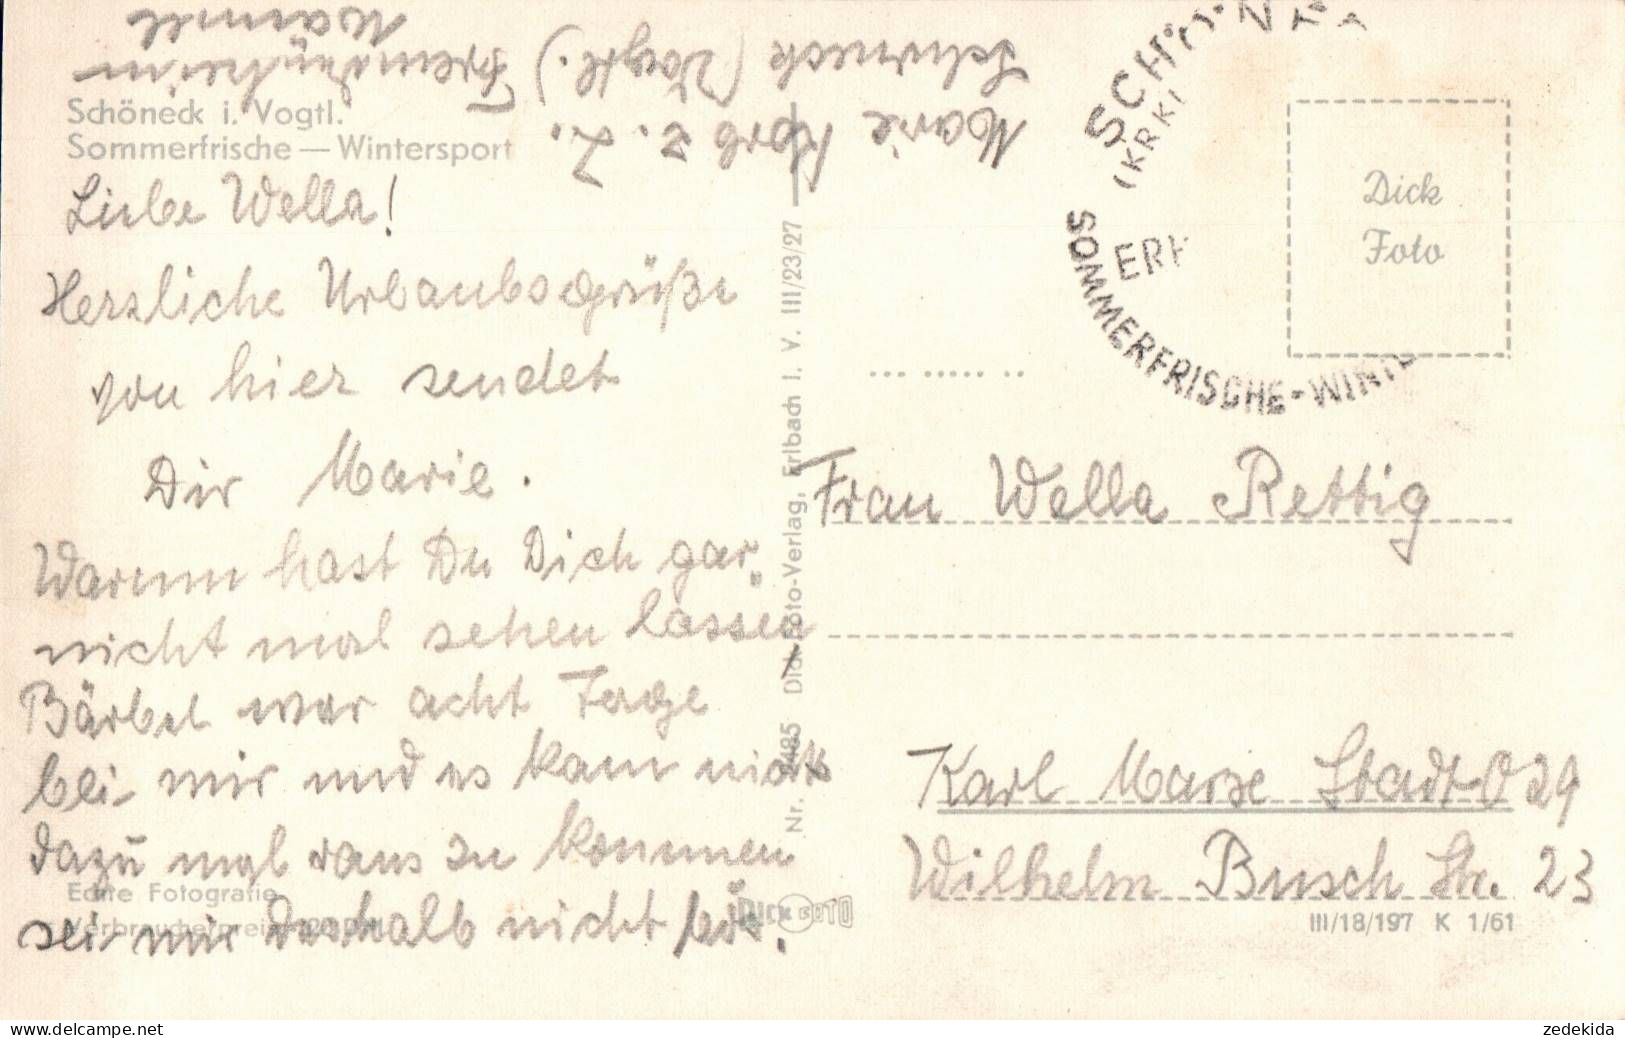 Schöneck i. Vogtl.
Sommerfrische — Wintersport
Liebe Wella!
Herzliche Urlaubsgrüße
von hier sendet
Dir Marie.
Warum hast Du Dich gar
nicht mal sehen lassen
Bärbel war acht Tage
bei mir und es kam nicht
dazu mal raus zu kommen
sei mir deshalb nicht bös.
Echte Fotografie
Verbraucherpreis
DICK FOTO
Marie Korb z. Z.
Schöneck (Vogtl.)
Nr. 2485 Dick-Foto-Verlag, Erlbach i. V. III/23/27
SCHÖN
(KRKI
ERH
SOMMERFRISCHE-WINTE
Dick
Foto
Frau Wella Rettig
Karl Marx Stadt O 29
Wilhelm Busch Str. 23
III/18/197 K 1/61
www.delcampe.net
zedekida